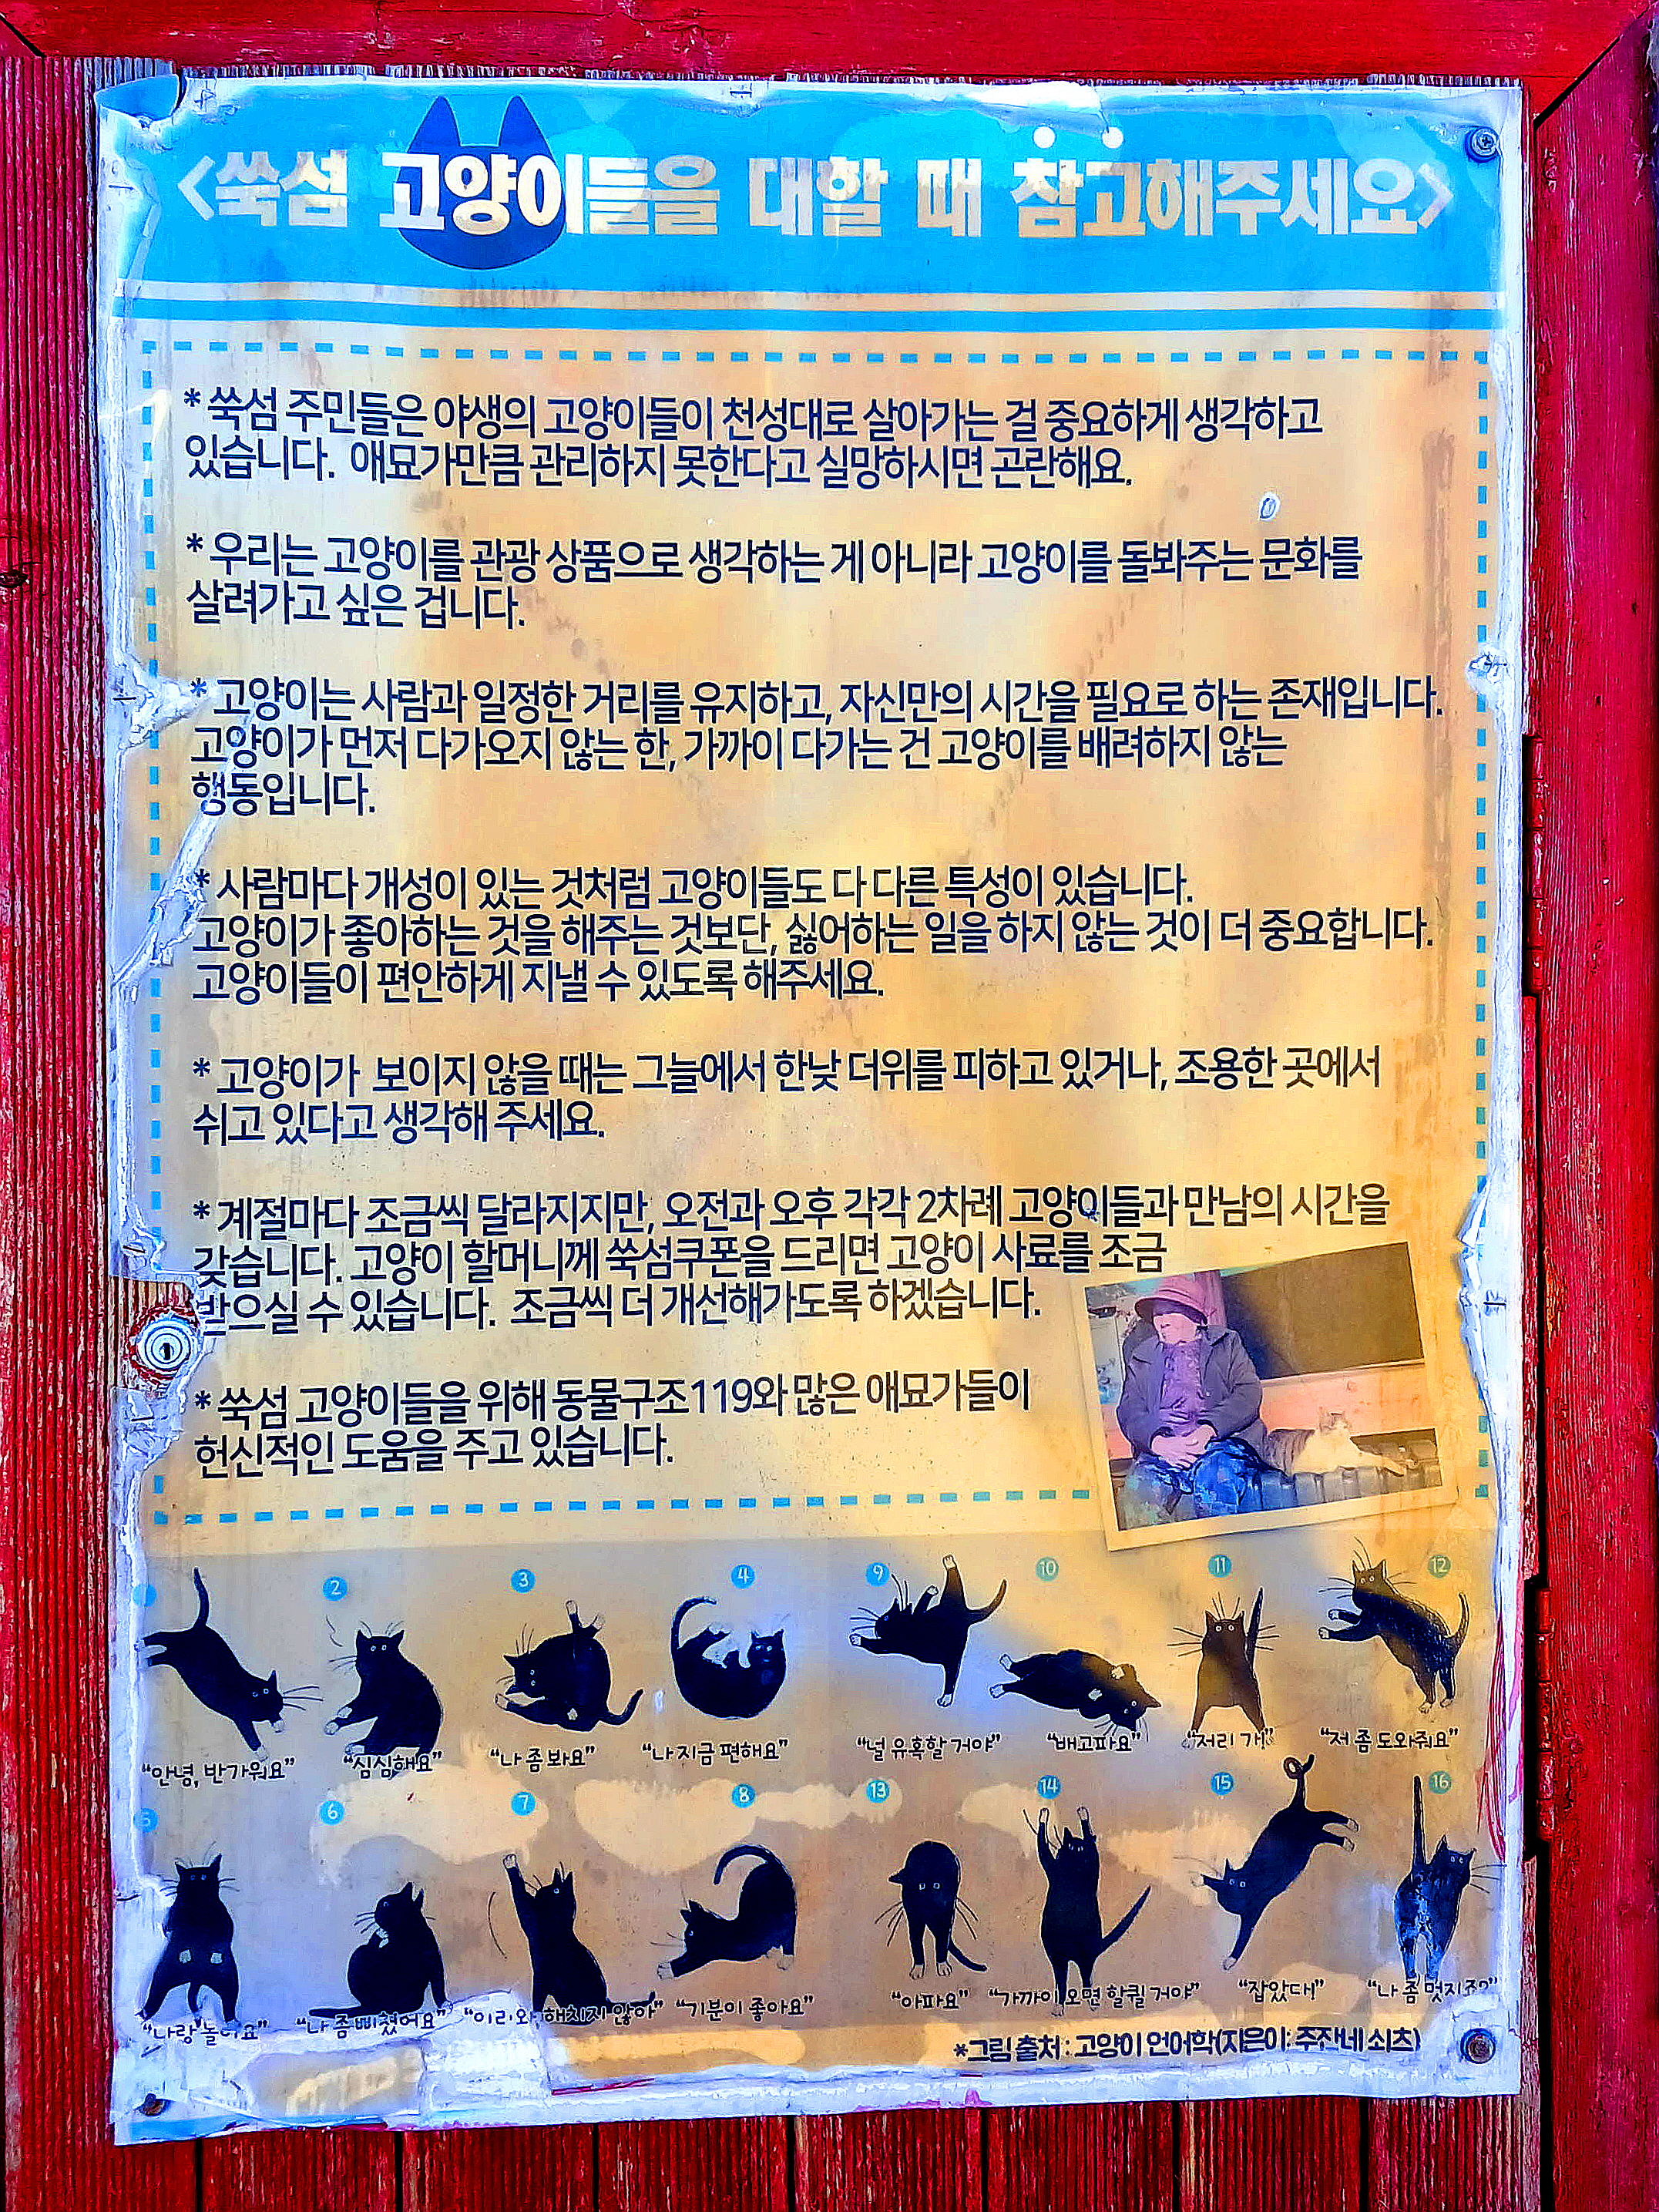 <쑥섬 고양이들을 대할 때 참고해주세요>
* 쑥섬 주민들은 야생의 고양이들이 천성대로 살아가는 걸 중요하게 생각하고
있습니다. 애묘가만큼 관리하지 못한다고 실망하시면 곤란해요.
* 우리는 고양이를 관광 상품으로 생각하는 게 아니라 고양이를 돌봐주는 문화를
살려가고 싶은 겁니다.
* 고양이는 사람과 일정한 거리를 유지하고, 자신만의 시간을 필요로 하는 존재입니다.
고양이가 먼저 다가오지 않는 한, 가까이 다가는 건 고양이를 배려하지 않는
행동입니다.
* 사람마다 개성이 있는 것처럼 고양이들도 다 다른 특성이 있습니다.
고양이가 좋아하는 것을 해주는 것보단, 싫어하는 일을 하지 않는 것이 더 중요합니다.
고양이들이 편안하게 지낼 수 있도록 해주세요.
* 고양이가 보이지 않을 때는 그늘에서 한낮 더위를 피하고 있거나, 조용한 곳에서
쉬고 있다고 생각해 주세요.
* 계절마다 조금씩 달라지지만, 오전과 오후 각각 2차례 고양이들과 만남의 시간을
갖습니다. 고양이 할머니께 쑥섬쿠폰을 드리면 고양이 사료를 조금
받으실 수 있습니다. 조금씩 더 개선해가도록 하겠습니다.
* 쑥섬 고양이들을 위해 동물구조119와 많은 애묘가들이
헌신적인 도움을 주고 있습니다.
2 3 4 9 10 11 12
"안녕, 반가워요" "심심해요" "나 좀 봐요" "나 지금 편해요" "널 유혹할 거야" "배고파요" "저리 가!" "저 좀 도와줘요"
5 6 7 8 13 14 15 16
"나랑 놀아요" "나 좀 삐졌어요" "이리 와, 해치지 않아" "기분이 좋아요" "아파요" "가까이 오면 할퀼 거야" "잡았다!" "나 좀 멋지죠?"
*그림 출처 : 고양이 언어학(지은이: 주잔네 쇠츠)